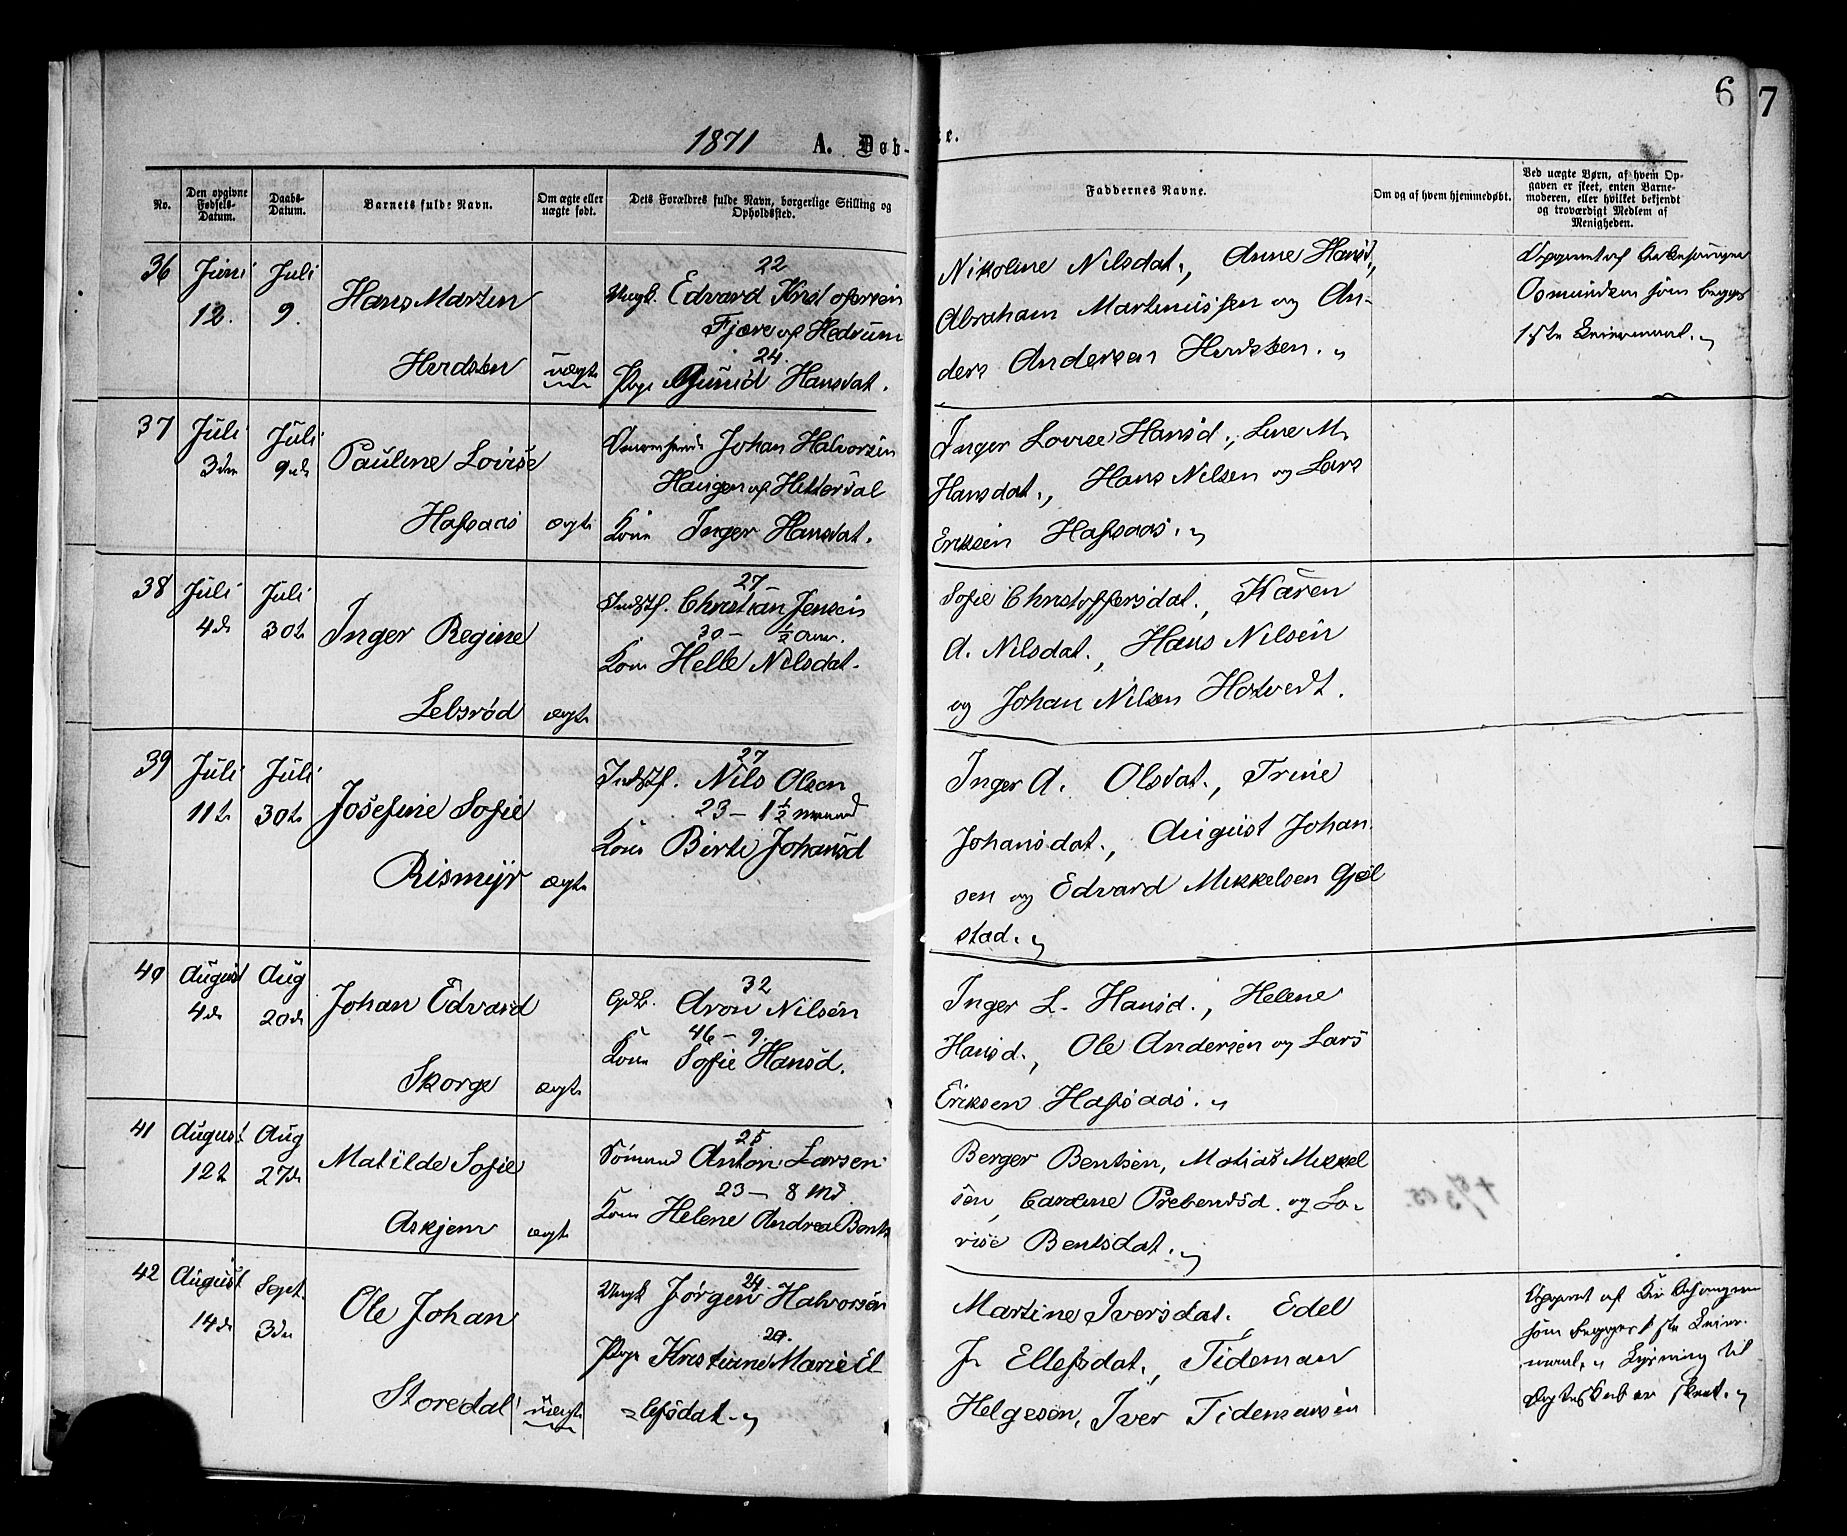 6
7
1871 A. Døb- e.
No.
Den opgivne Fødsels-Datum.
Daabs-Datum.
Barnets fulde Navn.
Om ægte eller uægte født.
Dets Forældres fulde Navn, borgerlige Stilling og Opholdssted.
Faddernes Navne.
Om og af hvem hjemmedøbt.
Ved uægte Børn, af hvem Op-
gaven er skeet, enten Barne-
moderen, eller hvilket bekjendt
og troværdigt Medlem af
Menigheden.
36
Juni
12.
Juli
9.
Hans Martin
uægte
22
Ungk. Edvard Kristofersen
Fjære af Hedrum
24.
Pige Gunild Hansdat.
Nikoline Nilsdat., Anne Hansd.,
Abraham Martinussen og An-
ders Andersen
Opgivet af Kirkesanger
som begges
1ste Leiermaal.
37
Juli
3die
Juli
9de
Pauline Lovise
Hafsaas
ægte
Johan Halvorsen
Haugen af Hitterdal
Kone Inger Hansdat.
Inger Lovise Hansd., Line M.
Hansdat., Hans Nilsen og Lars
Eriksen Hafsaas.
38
Juli
4de
Juli
30te
Inger Regine
ægte
27 –
Indst. Christian Jensen
30 – ½ Aar.
Kone Helle Nilsdat.
Sofie Christoffersdat., Karen
A. Nilsdat., Hans Nilsen
og Johan Nilsen Holvedt.
39
Juli
11te
Juli
30te
Josefine Sofie
Rismyr
ægte
27
Indst. Nils Olsen
23 – 1½ maaned
Kone Birte Johansd
Inger A. Olsdat., Trine
Johansdat., August Johan
sen og Edvard Mikkelsen Gjel
stad.
40
August
4de
Aug
20de
Johan Edvard
Skorge
ægte
32
Aron Nilsen
46 – 9.
Kone Sofie Hansd.
Inger L. Hansd., Helene
Hansd., Ole Andersen og Lars
Eriksen Hafsaas.
41
August
12te
Aug
27de
Matilde Sofie
Askjem
ægte
25
Sømand Anton Larsen
23 – 8 Md.
Kone Helene Andrea Bents
Berger Bentsen, Matias Mikkel
sen, Caroline Prebensd. og Lo-
vise Bentsdat.
42
August
14de
Sept.
3die
Ole Johan
Storedal
uægte
24.
Ungk Jørgen Halvorsen
20.
Pige Kristiane Marie El
=lefsdat.
Martine Iversdat., Edel
J. Ellefsdat., Tideman
Helgesen, Iver Tidemansen
Opgivet af Kirkesangeren
som begges 1ste Leier-
maal. Lysning til
Ægteskab er skeet.